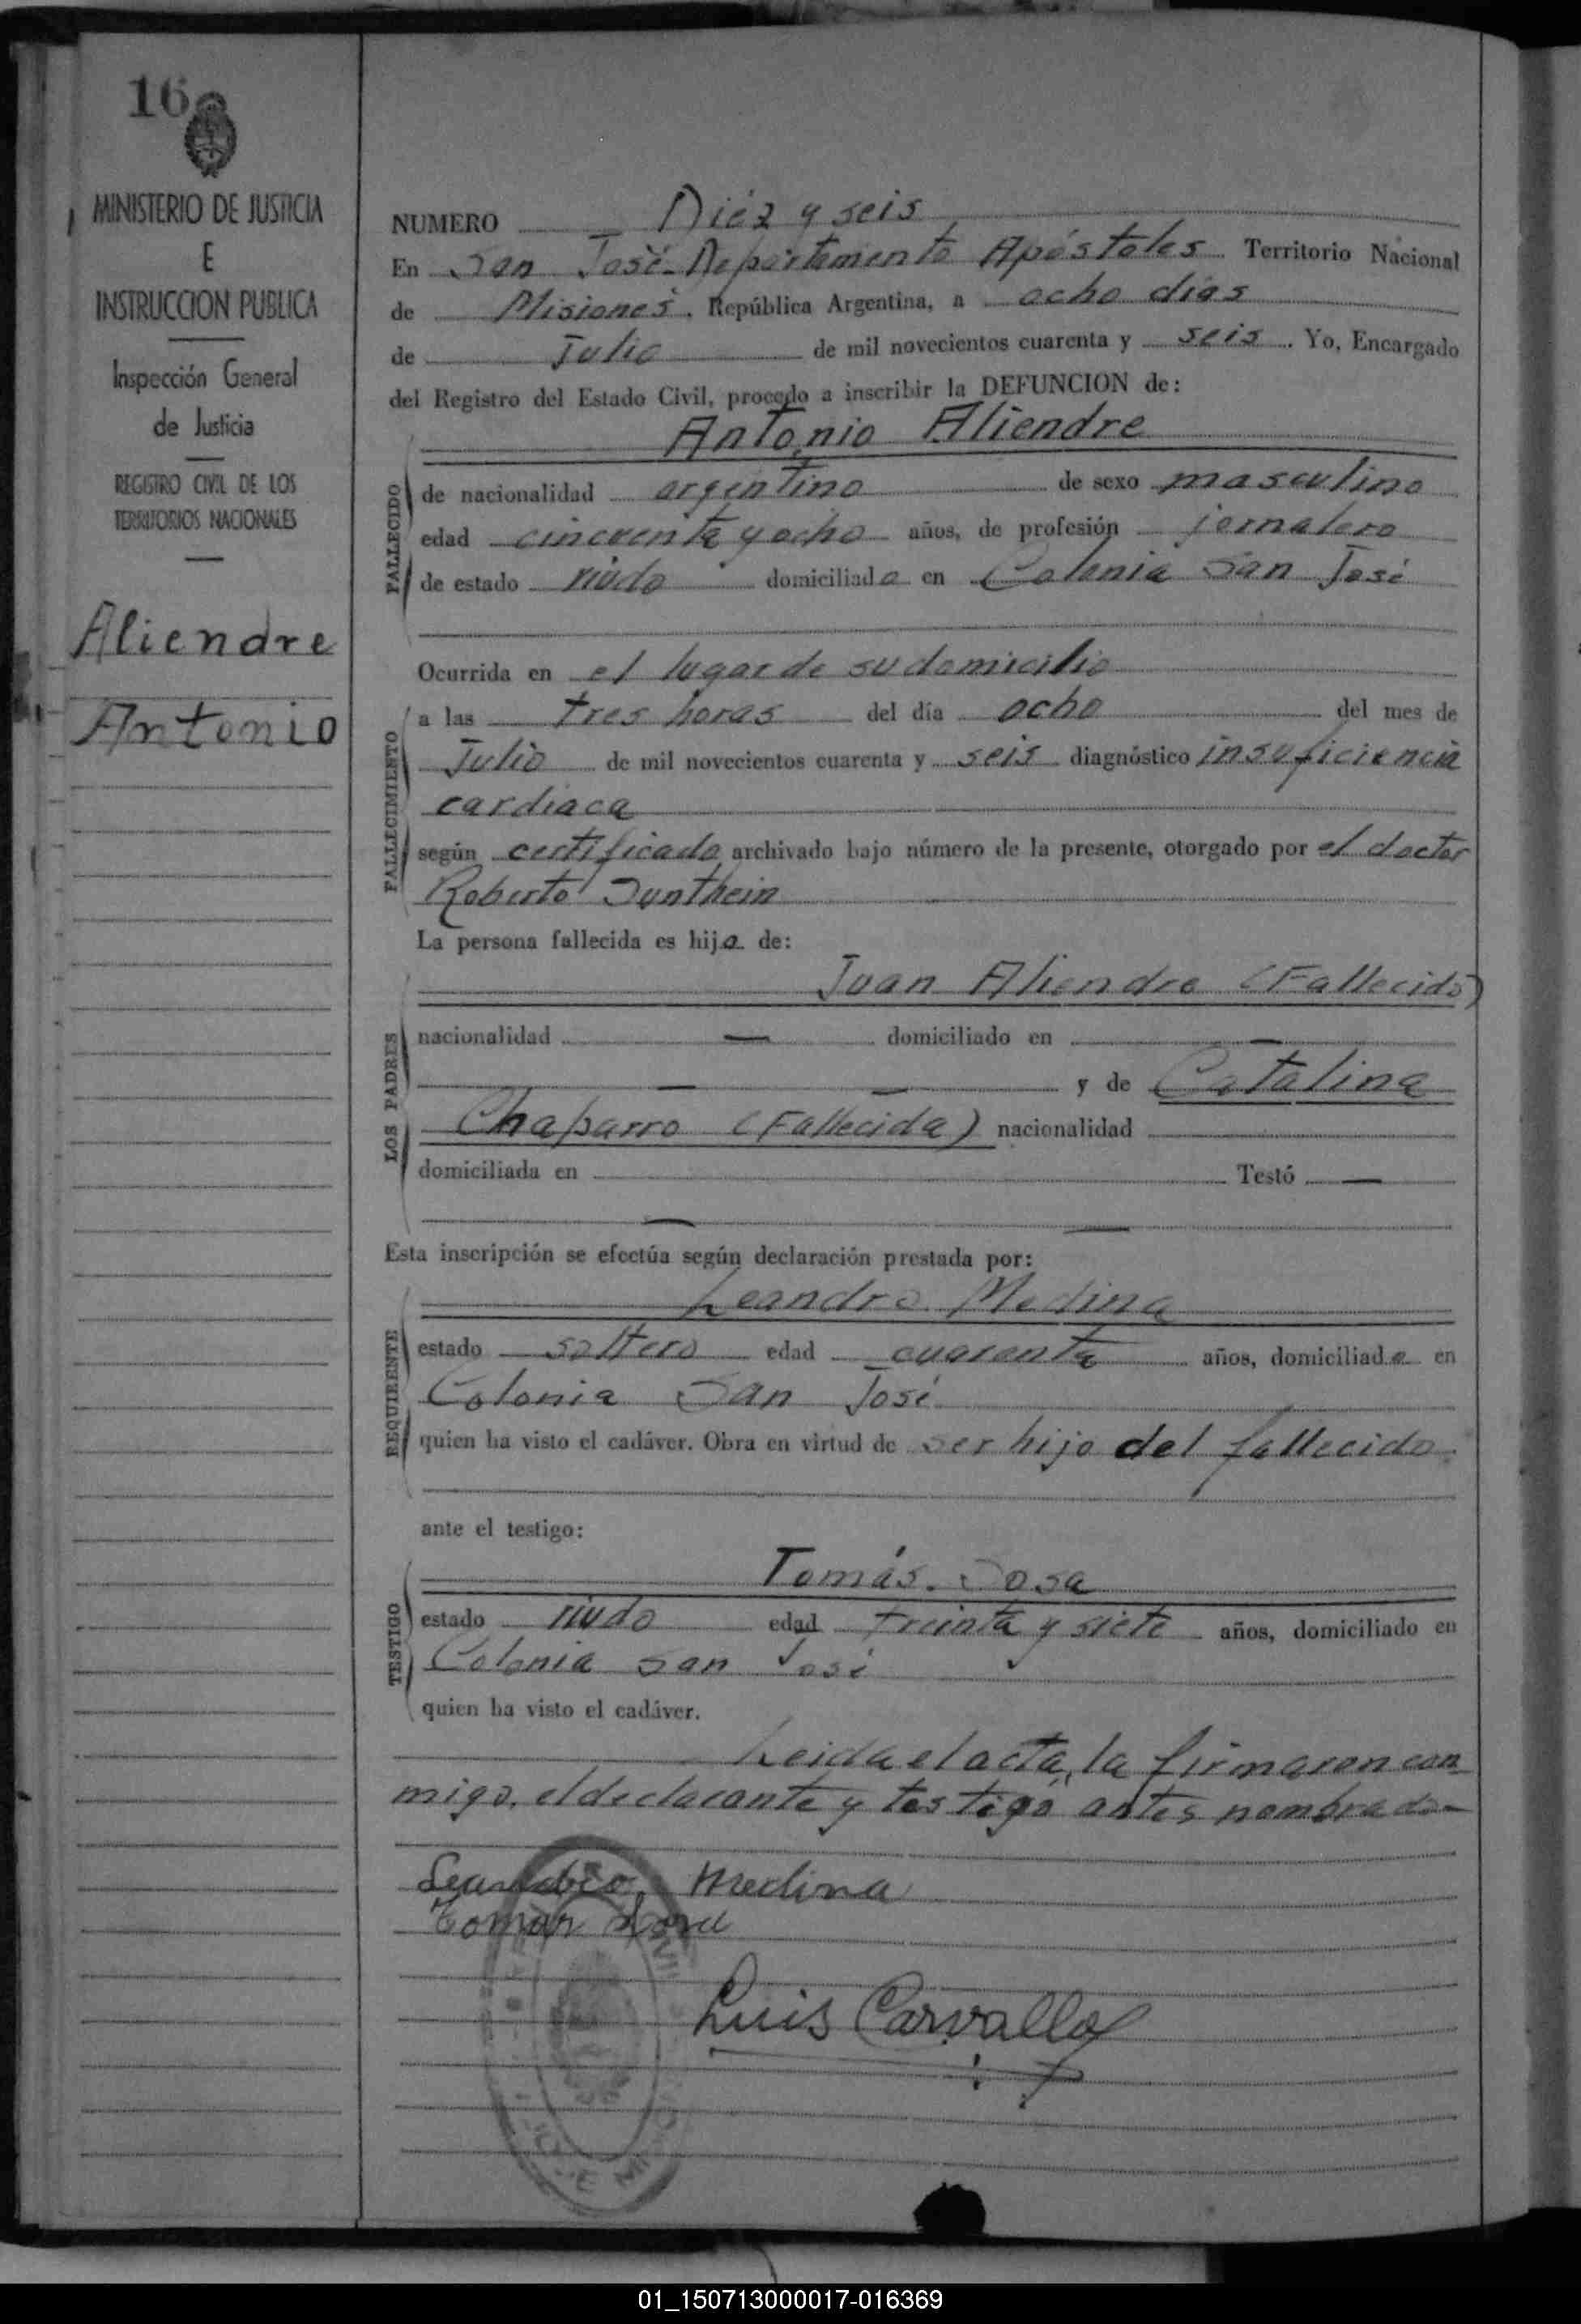 16
MINISTERIO DE JUSTICIA
E
INSTRUCCION PUBLICA
Inspección General
de Justicia
REGISTRO CIVIL DE LOS
TERRITORIOS NACIONALES
Aliendre
Antonio
NUMERO Diéz y seis
En San José. Departamento Apóstoles Territorio Nacional
de Misiones, República Argentina, a ocho dias
de Julio de mil novecientos cuarenta y seis. Yo, Encargado
del Registro del Estado Civil, procedo a inscribir la DEFUNCION de:
Antonio Aliendre
FALLECIDO
de nacionalidad argentino de sexo masculino
edad cincuenta y ocho años, de profesión jornalero
de estado viudo domiciliado en Colonia San José
Ocurrida en el lugar de su domicilio
FALLECIMIENTO
a las tres horas del día ocho del mes de
Julio de mil novecientos cuarenta y seis diagnóstico insuficiencia
cardiaca
según certificado archivado bajo número de la presente, otorgado por el doctor
Roberto
La persona fallecida es hijo de:
Juan Aliendre (Fallecido)
LOS PADRES
nacionalidad — domiciliado en —
— — y de Catalina
Chaparro (Fallecida) nacionalidad
domiciliada en Testó —
— —
Esta inscripción se efectúa según declaración prestada por:
Leandro Medina
REQUIRENTE
estado soltero edad cuarenta años, domiciliado en
Colonia San José
quien ha visto el cadáver. Obra en virtud de ser hijo del fallecido.
ante el testigo:
Tomás Sosa
TESTIGO
estado viudo edad treinta y siete años, domiciliado en
Colonia San José
quien ha visto el cadáver.
Leida el acta, la firmaron con
migo, el declarante y testigo antes nombrado—
Leandro Medina
Tomas Sosa
Luis Carvallo
01_150713000017-016369